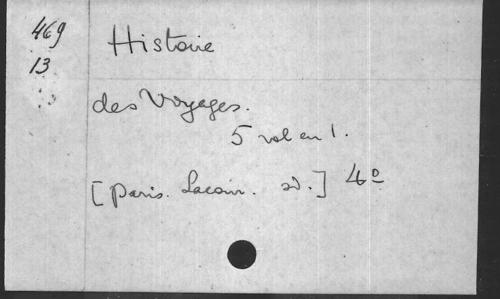 469
13
Histoire
des Voyages.
5 vol en 1.
[Paris. Lacour. sd.] 4º